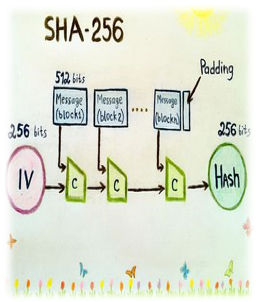 SHA-256
Padding
512 bits
Message
(block1)
Message
(block2)
....
Message
(blockn)
256 bits
256 bits
IV
C
C
C
HASH